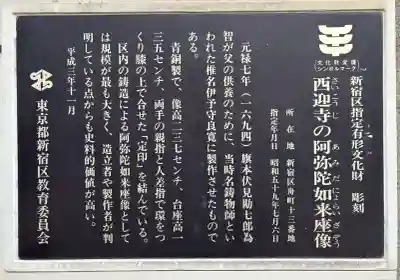 文化財愛護
シンボルマーク
新宿区指定有形文化財 彫刻
西迎寺の阿弥陀如来座像
さいこうじ あみだにょらいざぞう
所在地 新宿区舟町十三番地
指定年月日 昭和五十九年七月六日
元禄七年（一六九四）旗本伏見勘七郎為
智が父の供養のために、当時名鋳物師とい
われた椎名伊予守良寛に製作させたもので
ある。
青銅製で、像高二三七センチ、台座高一
三五センチ、両手の親指と人差指で環をつ
くり膝の上で合せた「定印」を結んでいる。
区内の鋳造による阿弥陀如来座像として
は規模が最も大きく、造立者や製作者が判
明している点からも史料的価値が高い。
平成三年十一月
東京都新宿区教育委員会